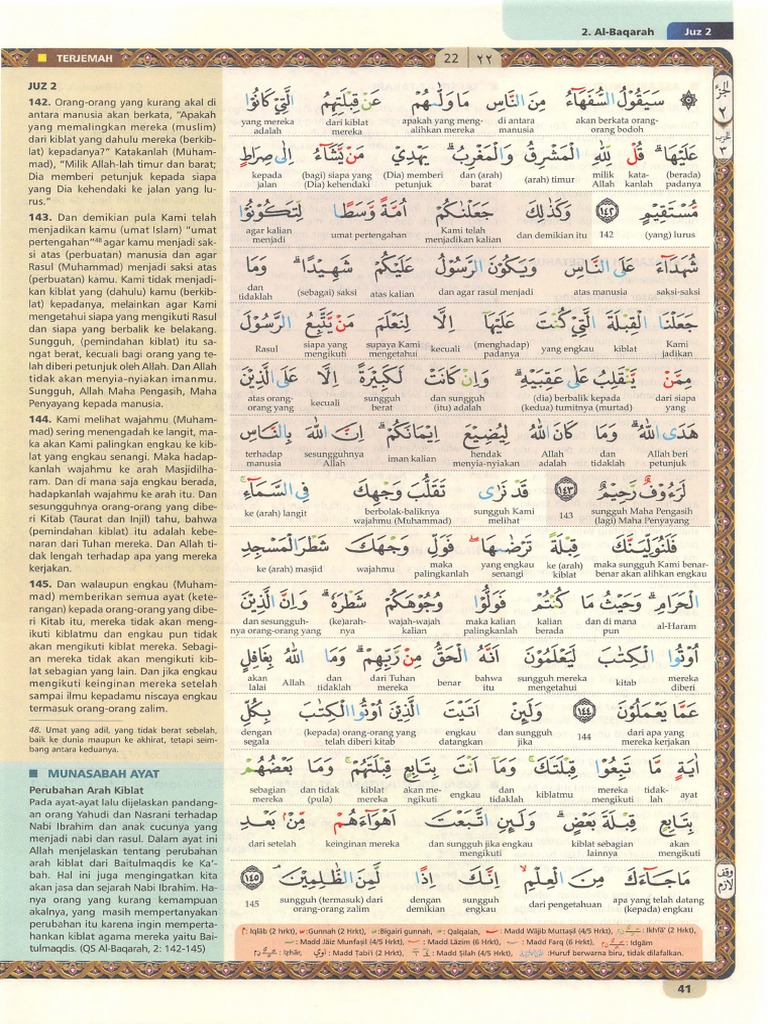 2. Al-Baqarah
Juz 2
TERJEMAH
22 | ٢٢
JUZ 2
142. Orang-orang yang kurang akal di
antara manusia akan berkata, "Apakah
yang memalingkan mereka (muslim)
dari kiblat yang dahulu mereka (berkib-
lat) kepadanya?" Katakanlah (Muham-
mad), "Milik Allah-lah timur dan barat;
Dia memberi petunjuk kepada siapa
yang Dia kehendaki ke jalan yang lu-
rus."
143. Dan demikian pula Kami telah
menjadikan kamu (umat Islam) "umat
pertengahan"48 agar kamu menjadi sak-
si atas (perbuatan) manusia dan agar
Rasul (Muhammad) menjadi saksi atas
(perbuatan) kamu. Kami tidak menjadi-
kan kiblat yang (dahulu) kamu (berkib-
lat) kepadanya, melainkan agar Kami
mengetahui siapa yang mengikuti Rasul
dan siapa yang berbalik ke belakang.
Sungguh, (pemindahan kiblat) itu sa-
ngat berat, kecuali bagi orang yang te-
lah diberi petunjuk oleh Allah. Dan Allah
tidak akan menyia-nyiakan imanmu.
Sungguh, Allah Maha Pengasih, Maha
Penyayang kepada manusia.
144. Kami melihat wajahmu (Muham-
mad) sering menengadah ke langit, ma-
ka akan Kami palingkan engkau ke kib-
lat yang engkau senangi. Maka hadap-
kanlah wajahmu ke arah Masjidilha-
ram. Dan di mana saja engkau berada,
hadapkanlah wajahmu ke arah itu. Dan
sesungguhnya orang-orang yang dibe-
ri Kitab (Taurat dan Injil) tahu, bahwa
(pemindahan kiblat) itu adalah kebe-
naran dari Tuhan mereka. Dan Allah ti-
dak lengah terhadap apa yang mereka
kerjakan.
145. Dan walaupun engkau (Muham-
mad) memberikan semua ayat (kete-
rangan) kepada orang-orang yang dibe-
ri Kitab itu, mereka tidak akan meng-
ikuti kiblatmu dan engkau pun tidak
akan mengikuti kiblat mereka. Sebagi-
an mereka tidak akan mengikuti kib-
lat sebagian yang lain. Dan jika engkau
mengikuti keinginan mereka setelah
sampai ilmu kepadamu niscaya engkau
termasuk orang-orang zalim.
48. Umat yang adil, yang tidak berat sebelah,
baik ke dunia maupun ke akhirat, tetapi seim-
bang antara keduanya.
MUNASABAH AYAT
Perubahan Arah Kiblat
Pada ayat-ayat lalu dijelaskan pandang-
an orang Yahudi dan Nasrani terhadap
Nabi Ibrahim dan anak cucunya yang
menjadi nabi dan rasul. Dalam ayat ini
Allah menjelaskan tentang perubahan
arah kiblat dari Baitulmaqdis ke Ka'-
bah. Hal ini juga mengingatkan kita
akan jasa dan sejarah Nabi Ibrahim. Ha-
nya orang yang kurang kemampuan
akalnya, yang masih mempertanyakan
perubahan itu karena ingin memperta-
hankan kiblat agama mereka yaitu Bai-
tulmaqdis. (QS Al-Baqarah, 2: 142-145)
سَيَقُوْلُ السُّفَهَاۤءُ مِنَ النَّاسِ مَا وَلّٰىهُمْ عَنْ قِبْلَتِهِمُ الَّتِيْ كَانُوْا
akan berkata orang-orang bodoh | di antara manusia | apakah yang mengalihkan mereka | dari kiblat mereka | yang mereka adalah
عَلَيْهَاۗ قُلْ لِّلّٰهِ الْمَشْرِقُ وَالْمَغْرِبُۗ يَهْدِيْ مَنْ يَّشَاۤءُ اِلٰى صِرَاطٍ
(berada) padanya | katakanlah | milik Allah | (arah) timur | dan (arah) barat | (Dia) memberi petunjuk | (bagi) siapa yang (Dia) kehendaki | kepada jalan
مُّسْتَقِيْمٍ ١٤٢ وَكَذٰلِكَ جَعَلْنٰكُمْ اُمَّةً وَّسَطًا لِّتَكُوْنُوْا
(yang) lurus | 142 | dan demikian itu | Kami telah menjadikan kalian | umat pertengahan | agar kalian menjadi
شُهَدَاۤءَ عَلَى النَّاسِ وَيَكُوْنَ الرَّسُوْلُ عَلَيْكُمْ شَهِيْدًاۗ وَمَا
saksi-saksi | atas manusia | dan agar rasul menjadi | atas kalian | (sebagai) saksi | dan tidaklah
جَعَلْنَا الْقِبْلَةَ الَّتِيْ كُنْتَ عَلَيْهَآ اِلَّا لِنَعْلَمَ مَنْ يَّتَّبِعُ الرَّسُوْلَ
Kami jadikan | kiblat | yang engkau | (menghadap) padanya | kecuali | supaya Kami mengetahui | siapa yang mengikuti | Rasul
مِمَّنْ يَّنْقَلِبُ عَلٰى عَقِبَيْهِۗ وَاِنْ كَانَتْ لَكَبِيْرَةً اِلَّا عَلَى الَّذِيْنَ
dari siapa yang | (dia) berbalik kepada (kedua) tumitnya (murtad) | dan sungguh (itu) adalah | sungguh berat | kecuali | atas orang-orang yang
هَدَى اللّٰهُۗ وَمَا كَانَ اللّٰهُ لِيُضِيْعَ اِيْمَانَكُمْۗ اِنَّ اللّٰهَ بِالنَّاسِ
Allah beri petunjuk | dan tidaklah | Allah adalah | hendak menyia-nyiakan | iman kalian | sesungguhnya Allah | terhadap manusia
لَرَءُوْفٌ رَّحِيْمٌ ١٤٣ قَدْ نَرٰى تَقَلُّبَ وَجْهِكَ فِى السَّمَاۤءِۚ
sungguh Maha Pengasih (lagi) Maha Penyayang | 143 | sungguh Kami melihat | berbolak-baliknya wajahmu (Muhammad) | ke (arah) langit
فَلَنُوَلِّيَنَّكَ قِبْلَةً تَرْضٰىهَاۖ فَوَلِّ وَجْهَكَ شَطْرَ الْمَسْجِدِ
maka sungguh Kami benar-benar akan alihkan engkau | ke (arah) kiblat | yang engkau senangi | maka palingkanlah | wajahmu | ke (arah) masjid
الْحَرَامِۗ وَحَيْثُ مَا كُنْتُمْ فَوَلُّوْا وُجُوْهَكُمْ شَطْرَهٗۗ وَاِنَّ الَّذِيْنَ
al-Haram | dan di mana pun | kalian berada | maka kalian palingkanlah | wajah-wajah kalian | (ke)arah-nya | dan sesungguh-nya orang-orang yang
اُوْتُوا الْكِتٰبَ لَيَعْلَمُوْنَ اَنَّهُ الْحَقُّ مِنْ رَّبِّهِمْۗ وَمَا اللّٰهُ بِغَافِلٍ
mereka diberi | kitab | sungguh mereka mengetahui | bahwa itu | benar | dari Tuhan mereka | dan tidaklah | Allah | akan lalai
عَمَّا يَعْمَلُوْنَ ١٤٤ وَلَىِٕنْ اَتَيْتَ الَّذِيْنَ اُوْتُوا الْكِتٰبَ بِكُلِّ
dari apa yang mereka kerjakan | 144 | dan sungguh jika | engkau datangkan | (kepada) orang-orang yang telah diberi kitab | dengan segala
اٰيَةٍ مَّا تَبِعُوْا قِبْلَتَكَۚ وَمَآ اَنْتَ بِتَابِعٍ قِبْلَتَهُمْۚ وَمَا بَعْضُهُمْ
ayat | tidak-lah | mereka mengikuti | kiblatmu | dan tidaklah | engkau | akan me-ngikuti | kiblat mereka | dan tidak (pula) | sebagian mereka
بِتَابِعٍ قِبْلَةَ بَعْضٍۗ وَلَىِٕنِ اتَّبَعْتَ اَهْوَاۤءَهُمْ مِّنْۢ بَعْدِ
akan mengikuti | kiblat sebagian lainnya | dan sungguh jika engkau mengikuti | keinginan mereka | dari setelah
مَا جَاۤءَكَ مِنَ الْعِلْمِۙ اِنَّكَ اِذًا لَّمِنَ الظّٰلِمِيْنَۘ ١٤٥
apa yang telah datang (kepada) engkau | dari pengetahuan | sungguh engkau | dengan demikian | sungguh (termasuk) dari orang-orang zalim | 145
الجزء ٢
حزب ٣
وقف لازم
: Iqlāb (2 hrkt), : Gunnah (2 Hrkt), : Bigairi gunnah, : Qalqalah, : Madd Wājib Muttaṣil (4/5 Hrkt), : Ikhfā' (2 Hrkt),
: Madd Jāiz Munfaṣil (4/5 Hrkt), : Madd Lāzim (6 Hrkt), : Madd Farq (6 Hrkt), : Idgām
: Iẓhār, : Madd Ṭabi'i (2 Hrkt), : Madd Ṣilah (4/5 Hrkt), : Huruf berwarna biru, tidak dilafalkan.
41